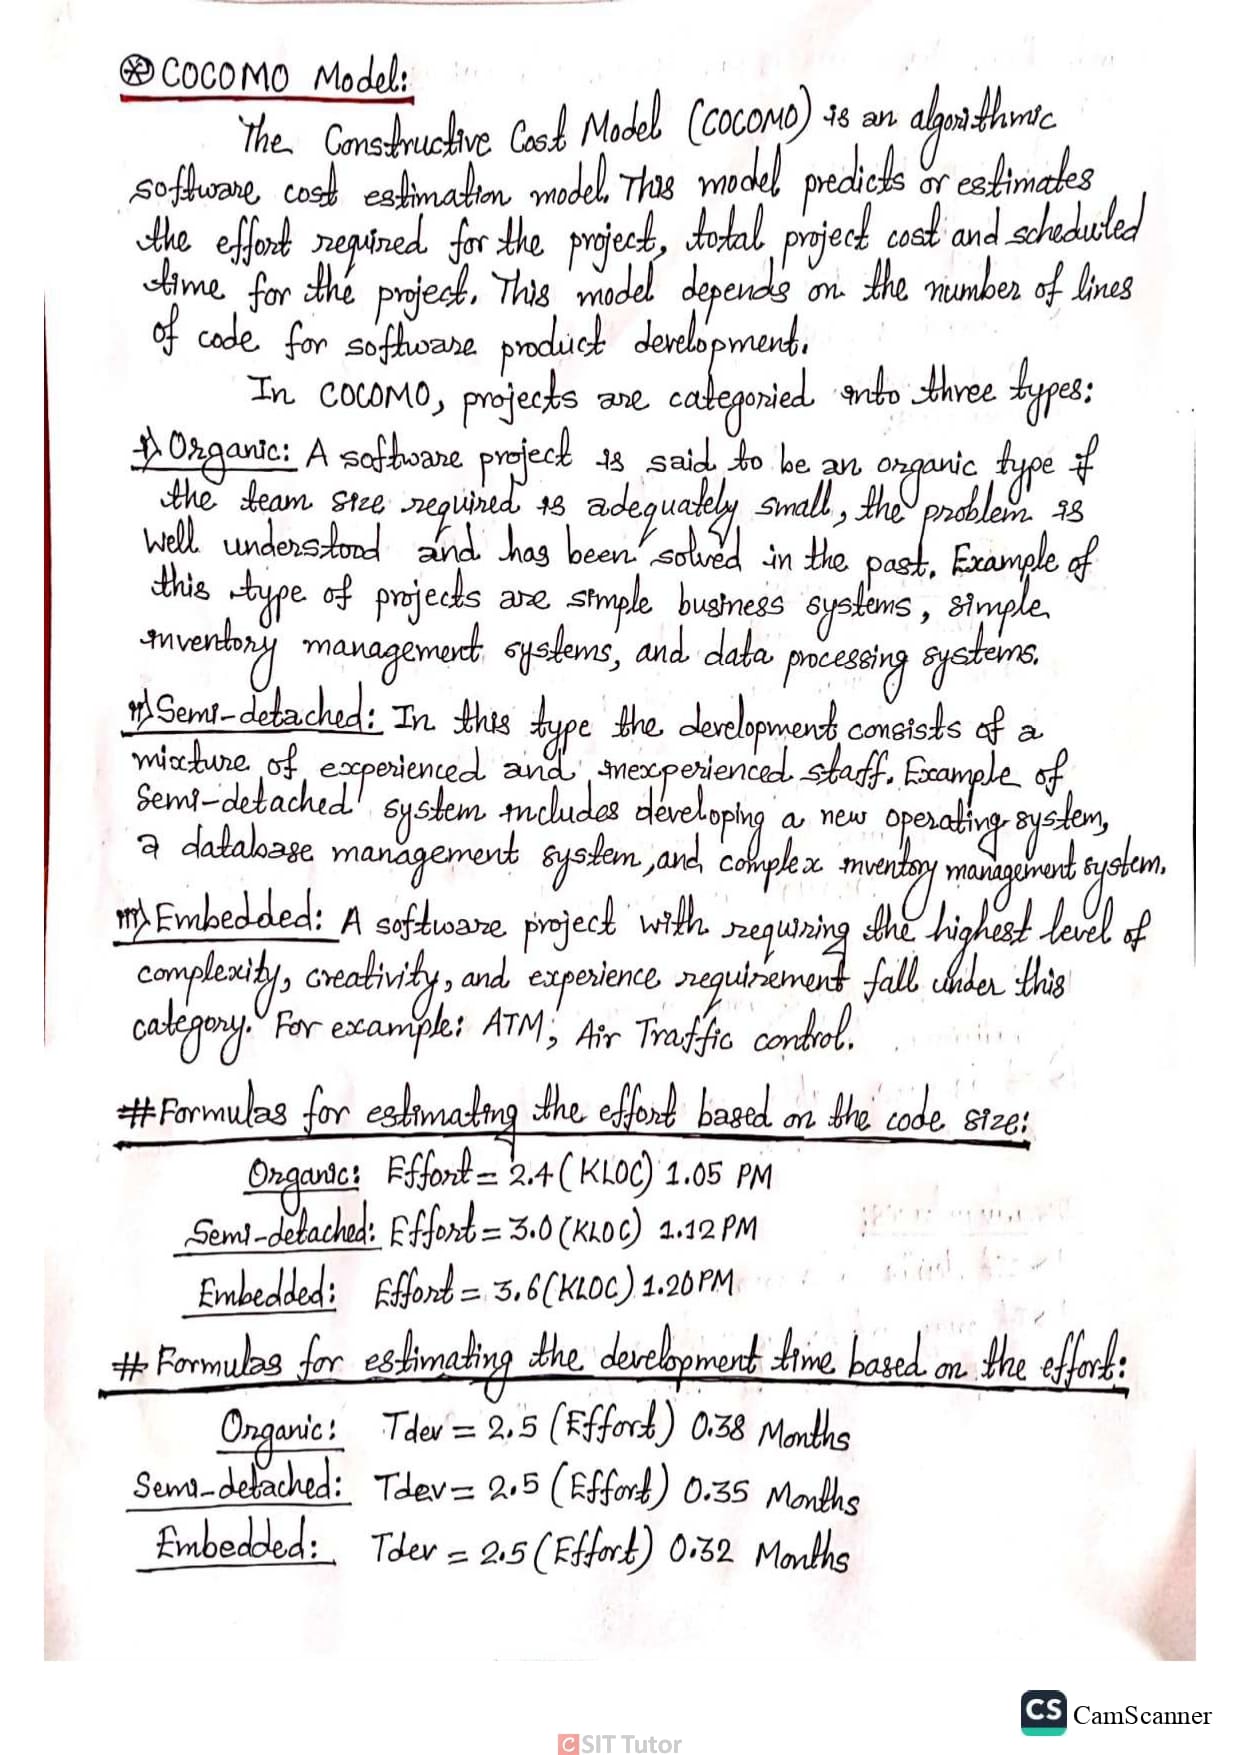 ⊛ COCOMO Model:
The Constructive Cost Model (COCOMO) is an algorithmic
software cost estimation model. This model predicts or estimates
the effort required for the project, total project cost and scheduled
time for the project. This model depends on the number of lines
of code for software product development.
In COCOMO, projects are categoried into three types:
i) Organic: A software project is said to be an organic type if
the team size required is adequately small, the problem is
well understood and has been solved in the past. Example of
this type of projects are simple business systems, simple
inventory management systems, and data processing systems.
ii) Semi-detached: In this type the development consists of a
mixture of experienced and inexperienced staff. Example of
Semi-detached system includes developing a new operating system,
a database management system, and complex inventory management system.
iii) Embedded: A software project with requiring the highest level of
complexity, creativity, and experience requirement fall under this
category. For example: ATM, Air Traffic control.
# Formulas for estimating the effort based on the code size:
Organic: Effort = 2.4 (KLOC) 1.05 PM
Semi-detached: Effort = 3.0 (KLOC) 1.12 PM
Embedded: Effort = 3.6 (KLOC) 1.20 PM
# Formulas for estimating the development time based on the effort:
Organic: Tdev = 2.5 (Effort) 0.38 Months
Semi-detached: Tdev = 2.5 (Effort) 0.35 Months
Embedded: Tdev = 2.5 (Effort) 0.32 Months
CS CamScanner
CSIT Tutor